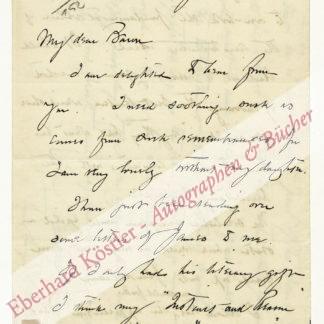 My dear Baron
I am delighted to hear from
you. I need soothing, such as
comes from such remembrances for
I am very lonely without my daughter.
I have just been reading over
some letters of James to me.
I only had his literary gift.
I think my "Instincts and Reason
Eberhard Köstler - Autographen & Bücher